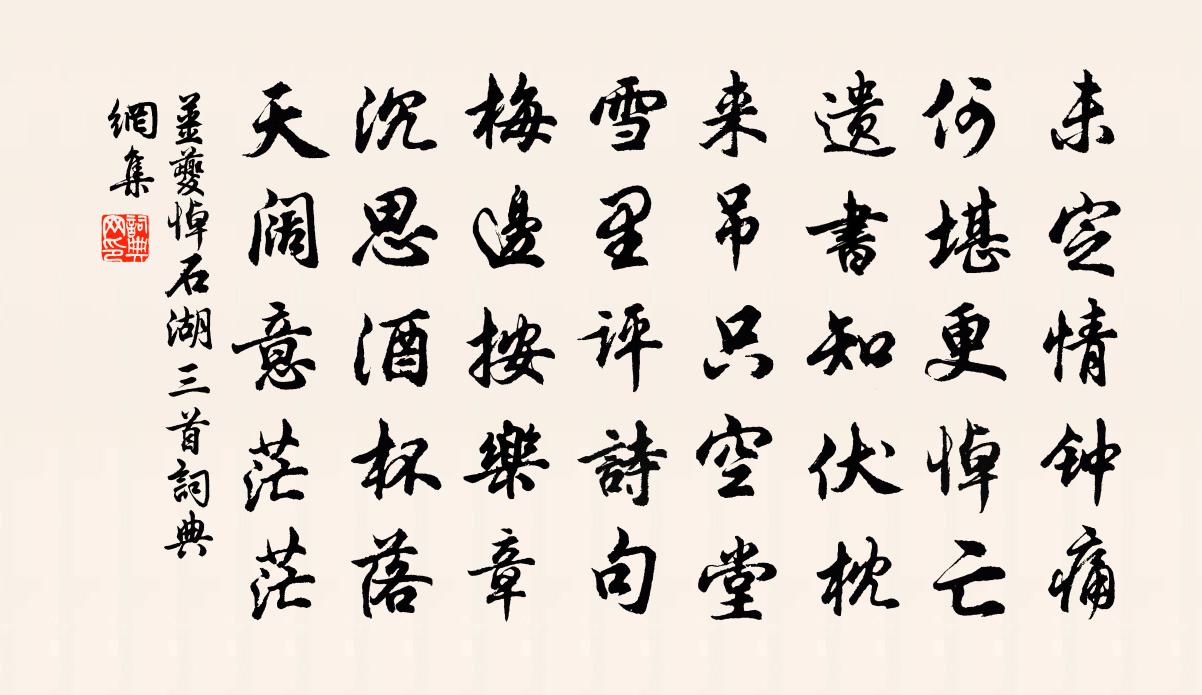 未定情钟痛
何堪更悼亡
遗書知伏枕
来吊只空堂
雪里评詩句
梅邊按樂章
沉思酒杯落
天阔意茫茫
姜夔悼石湖三首詞典
網集
詞典網印